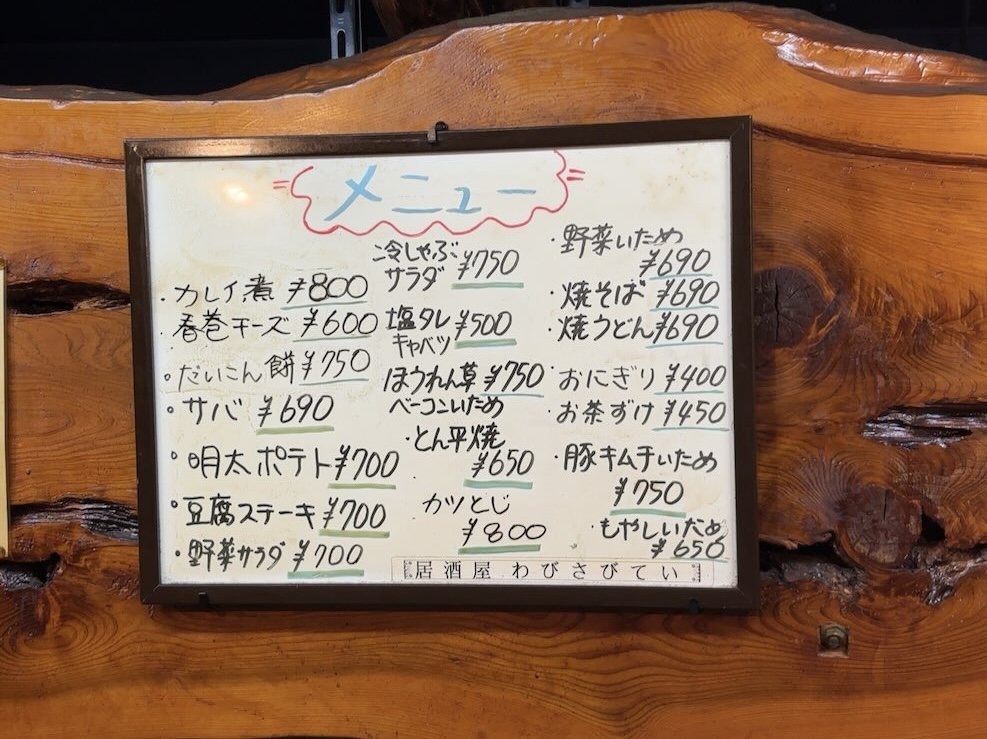 メニュー
・カレイ煮 ¥800
・春巻チーズ ¥600
。だいこん餅 ¥750
・サバ ¥690
・明太ポテト ¥700
・豆腐ステーキ ¥700
・野菜サラダ ¥700
冷しゃぶ
サラダ ¥750
塩タレ ¥500
キャベツ
ほうれん草 ¥750
ベーコンいため
・とん平焼
¥650
カツとじ
¥800
・野菜いため
¥690
・焼そば ¥690
・焼うどん ¥690
・おにぎり ¥400
・お茶ずけ ¥450
・豚キムチいため
¥750
・もやしいため
¥650
居酒屋 わびさびてい